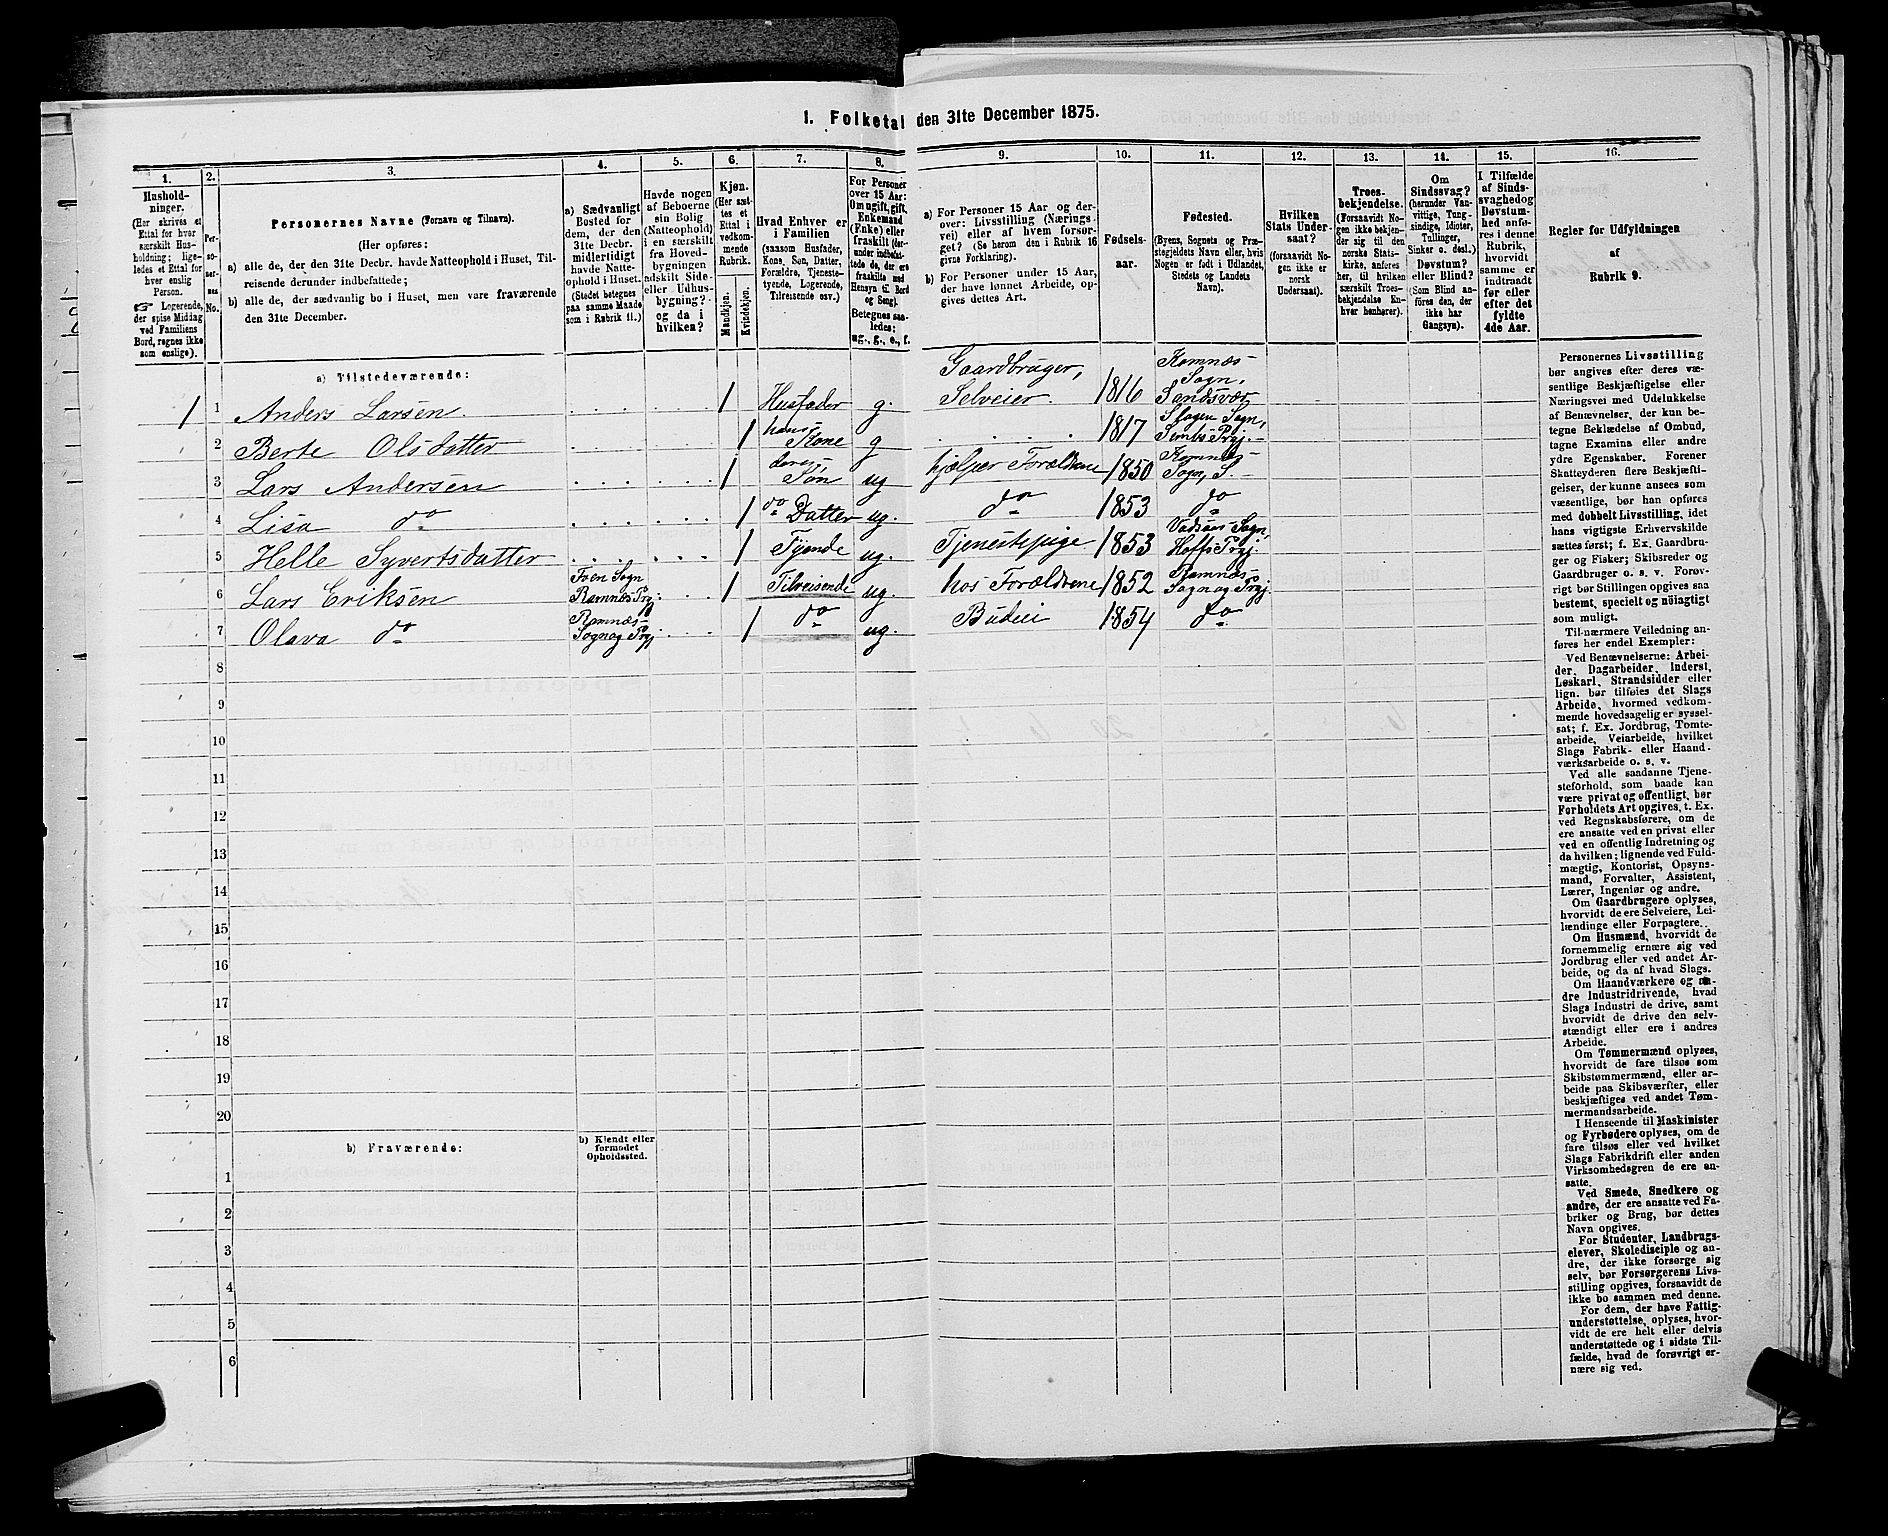 1. Folketal den 31te December 1875.
1.
2.
3.
4.
5.
6.
7.
8.
9.
10.
11.
12.
13.
14.
15.
16.
Husholdninger.
(Her skrives et
Ettal for hver
særskilt Husholdning; ligeledes
et Ettal for
hver enslig
Person.
☞ Logerende,
der spise Middag
ved Familiens
Bord, regnes ikke
som enslige).
Personernes No.
Personernes Navne (Fornavn og Tilnavn).
(Her opføres:
a) alle de, der den 31te Decbr. havde Natteophold i Huset, Tilreisende derunder indbefattede;
b) alle de, der sædvanlig bo i Huset, men vare fraværende
den 31te December.
a) Sædvanligt
Bosted for
dem, der den
31te Decbr.
midlertidigt
havde Natteophold i Huset.
(Stedet betegnes
paa samme Maade
som i Rubrik 11.)
Havde nogen
af Beboerne
sin Bolig
(Natteophold)
i en særskilt
fra Hovedbygningen
adskilt Side- eller Udhusbygning?
og da i
hvilken?
Kjøn.
(Her sættes et
Ettal i
vedkommende
Rubrik.
Mandkjøn.
Kvindekjøn.
Hvad Enhver er
i Familien
(saasom Husfader,
Kone, Søn, Datter,
Forældre, Tjenestetyende, Logerende,
Tilreisende osv.)
For Personer
over 15 Aar:
Om ugift, gift,
Enkemand
(Enke) eller
fraskilt (derunder indbefattede de, der ere
fraskilte med
Hensyn til Bord
og Seng).
Betegnes saaledes:
ug., g., e., f.
a) For Personer 15 Aar og derover: Livsstilling (Næringsvei) eller af hvem forsørget? (Se herom den i Rubrik 16
givne Forklaring).
b) For Personer under 15 Aar,
der have lønnet Arbeide, opgives dettes Art.
Fødselsaar.
Fødested.
(Byens, Sognets og Præstegjeldets Navn eller, hvis
Nogen er født i Udlandet,
Stedets og Landets
Navn).
Hvilken
Stats Undersaat?
(forsaavidt Nogen ikke er
norsk
Undersaat).
Troesbekjendelse.
(Forsaavidt Nogen ikke bekjender sig til den
norske Statskirke, anføres
her, til hvilken
særskilt Troesbekjendelse Enhver henhører).
Om
Sindssvag?
(herunder Vanvittige, Tungsindige, Idioter,
Tullinger,
Sinker o. desl.)
Døvstum?
eller Blind?
(Som Blind anføres den, der
ikke har
Gangsyn).
I Tilfælde
af Sindssvaghed og
Døvstumhed anføres i denne
Rubrik,
hvorvidt
samme er
indtraadt
før eller
efter det
fyldte
4de Aar.
Regler for Udfyldningen
af
Rubrik 9.
a) Tilstedeværende:
1 1 Anders Larsen. 1 Husfader g. Gaardbruger, Selveier. 1816 Komnæs Sogn, Sandsvær
2 Berte Olsdatter 1 hans Kone g 1817 Slagen Sogn, Sembs Prgj.
3 Lars Andersen 1 deres Søn ug hjælper Forældrene 1850 Komnæs Sogn, S.
4 Lisa do 1 do Datter ug. do 1853 do
5 Helle Syvertsdatter 1 Tyende ug. Tjenestepige 1853 Sogn, Hoffs Prgj.
6 Lars Eriksen Foen Sogn Ramnæs Prgj. 1 Tilreisende ug. hos Forældrene 1852 Ramnæs Sogn og Prgj.
7 Olava do Ramnæs Sogn og Prgj 1 do ug. Budeie 1854 do
8
9
10
11
12
13
14
15
16
17
18
19
20
b) Fraværende:
b) Kjendt eller
formodet
Opholdssted.
1
2
3
4
5
6
Personernes Livsstilling
bør angives efter deres væsentlige Beskjæftigelse eller
Næringsvei med Udelukkelse
af Benævnelser, der kun betegne Beklædelse af Ombud,
tagne Examina eller andre
ydre Egenskaber. Forener
Skatteyderen flere Beskjæftigelser, der kunne ansees som
væsentlige, bør han opføres
med dobbelt Livsstilling, idet
hans vigtigste Erhvervskilde
sættes først; f. Ex. Gaardbruger og Fisker; Skibsreder og
Gaardbruger o. s. v. Forøvrigt bør Stillingen opgives saa
bestemt, specielt og nøiagtigt
som muligt.
Til nærmere Veiledning anføres her endel Exempler:
Ved Benævnelserne: Arbeider, Dagarbeider, Inderst,
Løskarl, Strandsidder eller
lign. bør tilføies det Slags
Arbeide, hvormed vedkommende hovedsagelig er sysselsat; f. Ex. Jordbrug, Tomtearbeide, Veiarbeide, hvilket
Slags Fabrik- eller Haandværksarbeide o. s. v.
Ved alle saadanne Tjenesteforhold, som baade kan
være privat og offentligt, bør
Forholdets Art opgives, t. Ex.
ved Regnskabsførere, om de
ere ansatte ved en privat eller
ved en offentlig Indretning og
da hvilken; lignende ved Fuldmægtig, Kontorist, Opsynsmand, Forvalter, Assistent,
Lærer, Ingeniør og andre.
Om Gaardbrugere oplyses,
hvorvidt de ere Selveiere, Leilændinge eller Forpagtere.
Om Husmænd, hvorvidt de
fornemmelig ernære sig ved
Jordbrug eller ved andet Arbeide, og da af hvad Slags.
Om Haandværkere og andre Industridrivende, hvad
Slags Industri de drive, samt
hvorvidt de drive den selvstændigt eller ere i andres
Arbeide.
Om Tømmermænd oplyses,
hvorvidt de fare tilsøs som
Skibstømmermænd, eller arbeide paa Skibsværfter, eller
beskjæftiges ved andet Tømmermandsarbeide.
I Henseende til Maskinister
og Fyrbødere oplyses, om de
fare tilsøs eller ved hvilket
Slags Fabrikdrift eller anden
Virksomhedsgren de ere ansatte.
Ved Smede, Snedkere og
andre, der ere ansatte ved Fabriker og Brug, bør dettes
Navn opgives.
For Studenter, Landbrugselever, Skoledisciple og andre, der ikke forsørge sig
selv, bør Forsørgerens Livsstilling opgives, forsaavidt de
ikke bo sammen med denne.
For dem, der have Fattigunderstøttelse, oplyses, hvorvidt de ere helt eller delvis
understøttede og i sidste Tilfælde, hvad de forøvrigt ernære sig ved.